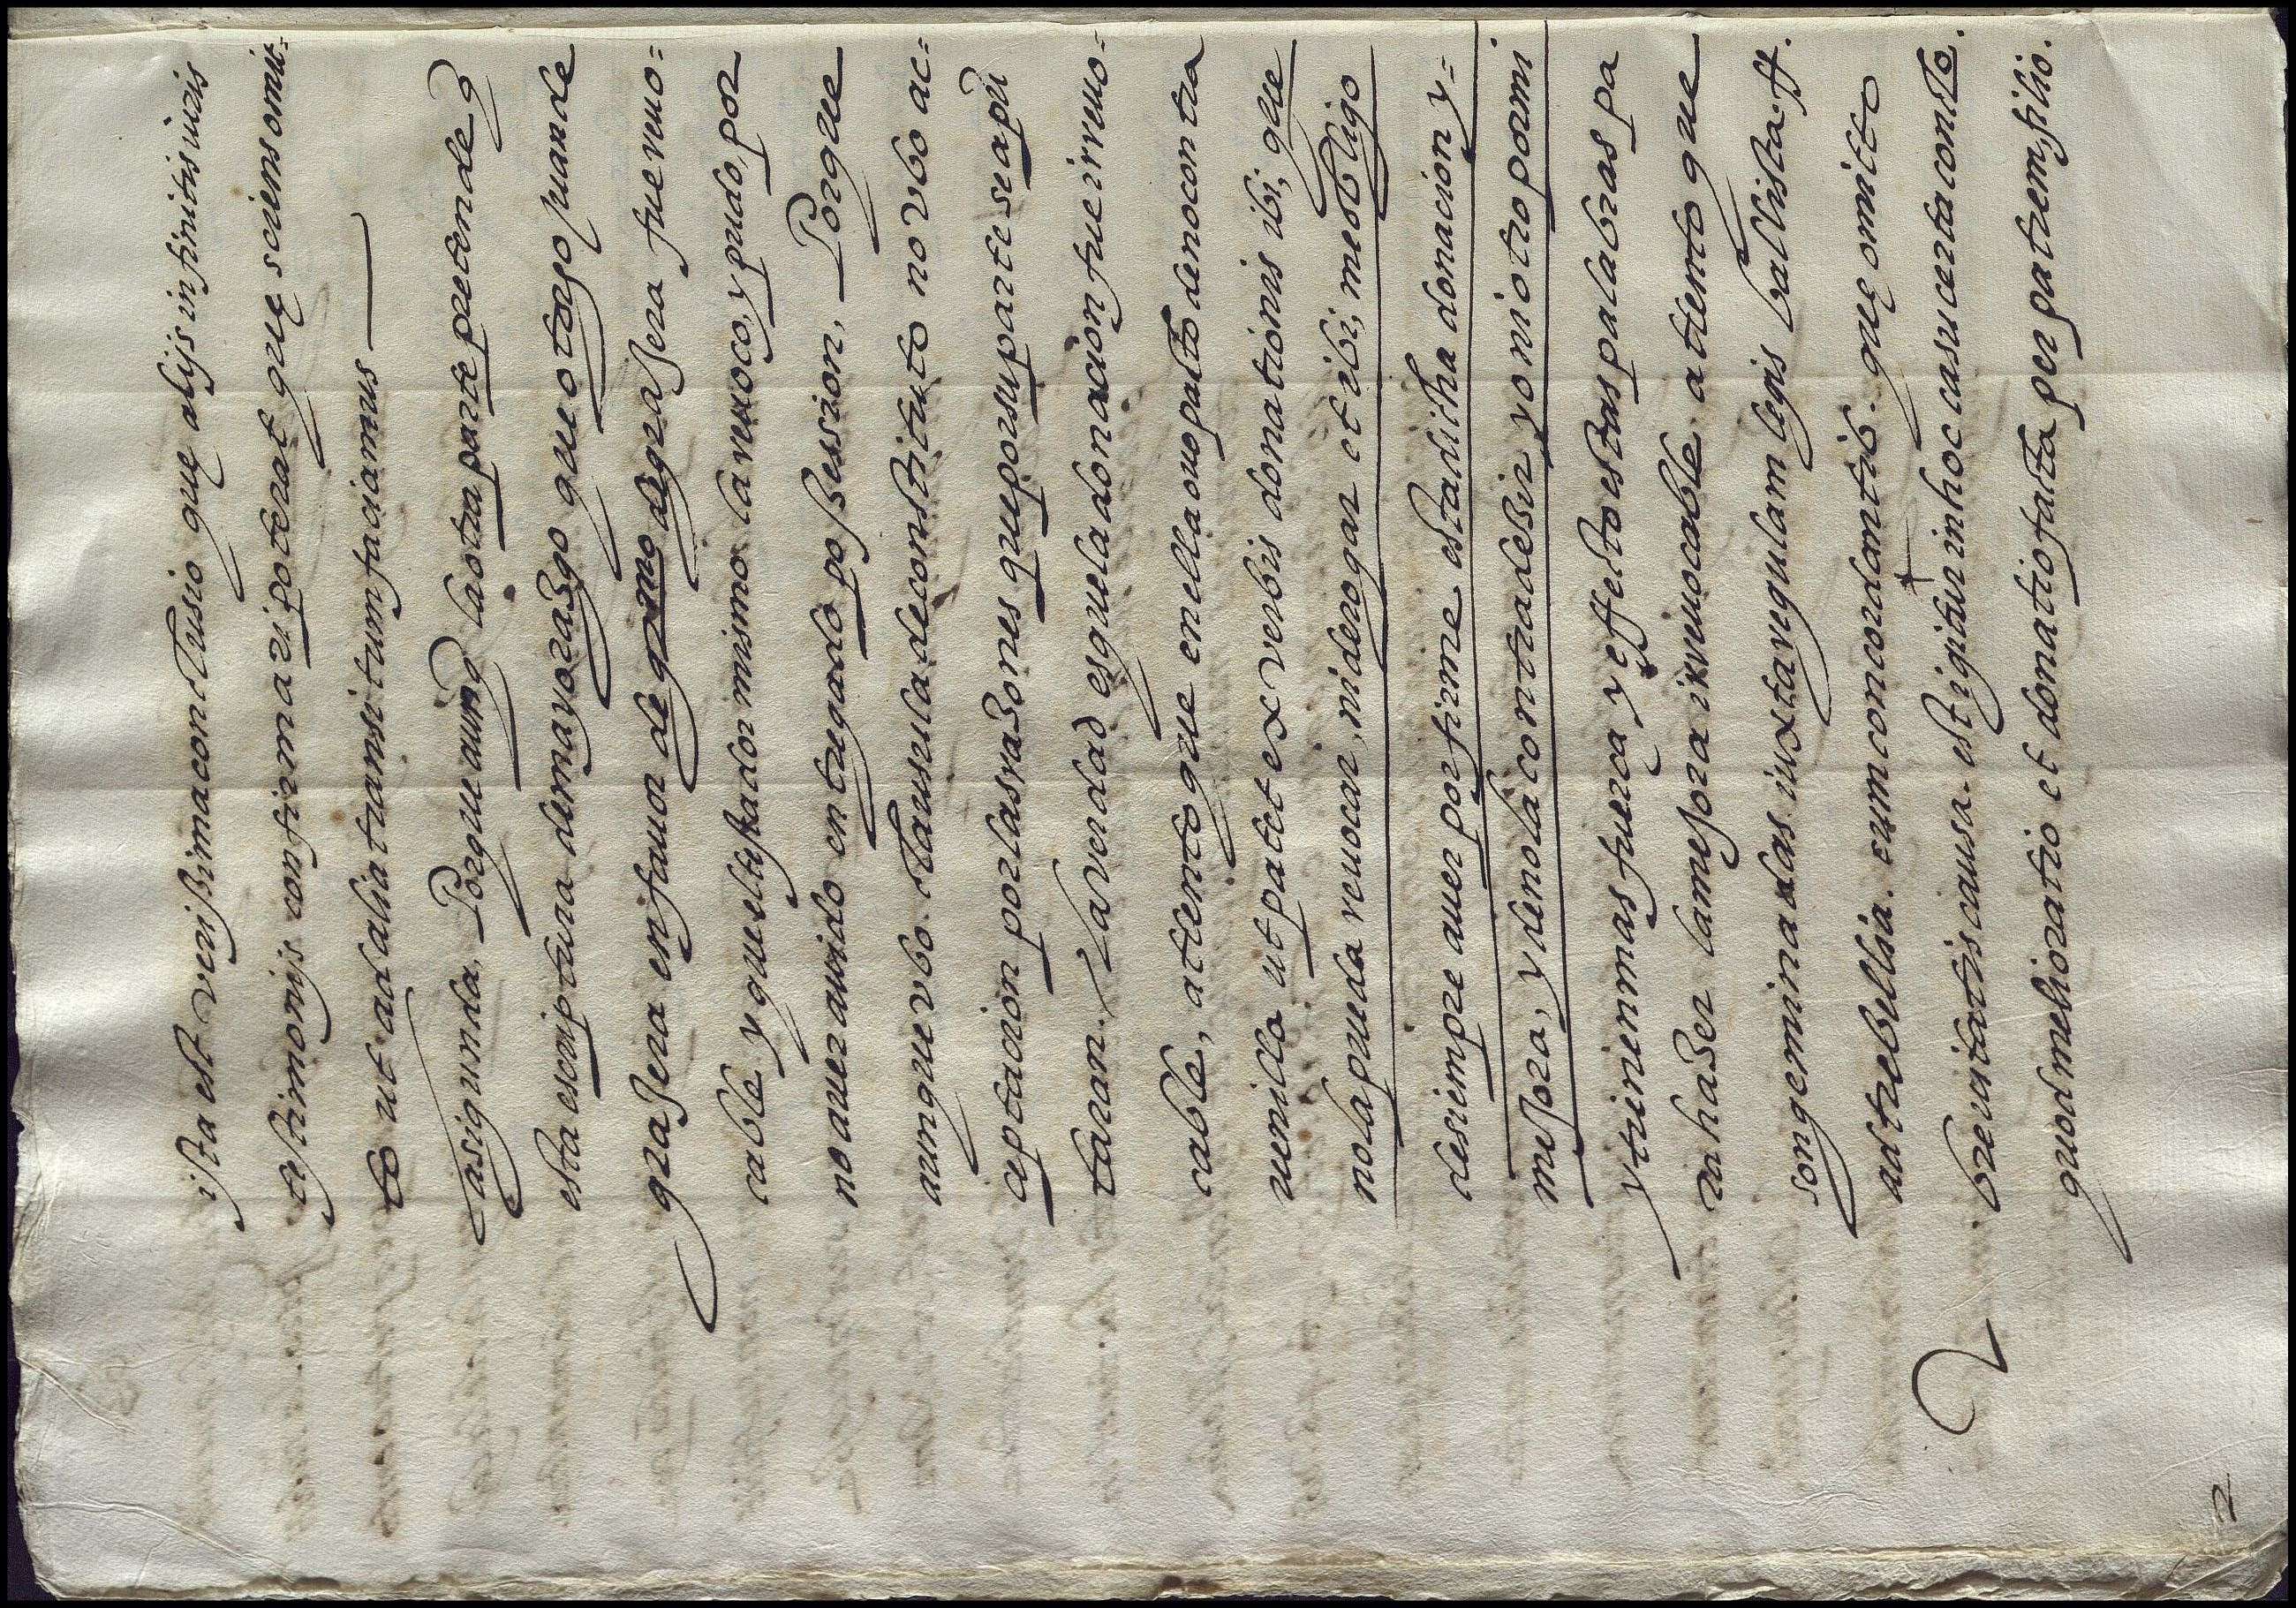 ista est verissima conclusio que alijs infinitis iuris
testimonijs confirmari poterat que sciens omit=
to ut ad alia transitum faciamus
La sigunda, Porque aunq la otra parte pretende q
esta escriptura de mayorazgo que otorgo juan de
grajera en fauor de grmo de grajera fue reuo=
cable y que el testador mismo la reuoco, y pudo, por
no auer auido entregado possession, Porque
aunque vbo clausula de constituto no vbo ac=
ceptacion por las razones que por su parte se apū
taran. La verdad es que la donacion fue irreuo=
cable, attento que en ella ouo pacto de no contra
uenilla ut patet ex verbis donationis ibi, que
no la pueda reuocar, ni derogar et ibi, me obligo
de siempre auer por firme esta dicha donacion y=
mejora, y de no la contradezir yo ni otro por mi
y tienen mas fuerça y effecto estas palabras pa
ra hazer la mejora irreuocable atento que
son geminadas iuxta regulam legis ballista. ff.
ad trebellia. cum concordantib. que omitto
breuitatis causa. est igitur in hoc casu certa conclo.
quod melioratio et donatio facta per patrem filio.
2